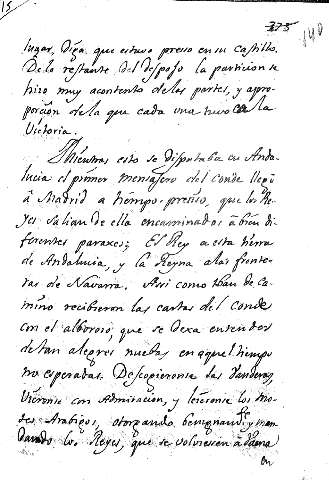 15.
375
140
lugar, diga que estuvo preso en su castillo.
De lo restante del despojo la particion se
hizo muy acontento de las partes, y apro-
porcion de la que cada una tuvo en la
Victoria.
Mientras esto se disputaba en Anda-
lucia el primer mensajero del conde llegò
à Madrid a tiempo preciso, que los Re-
yes salian de ella encaminados à bien di-
ferentes parages; El Rey a esta tierra
de Andalucia, y la Reyna a las fronte-
ras de Navarra. Assi como iban de ca-
mino recibieron las cartas del conde
con el alborozo, que se dexa entender
de tan alegres nuebas en aquel tiempo
no esperadas. Descogieronse las vanderas,
vieronse con Admiracion, y leieronse los mo-
tes Arabigos, otorgando benignamte y man
dando los Reyes, que se volviesen à
en